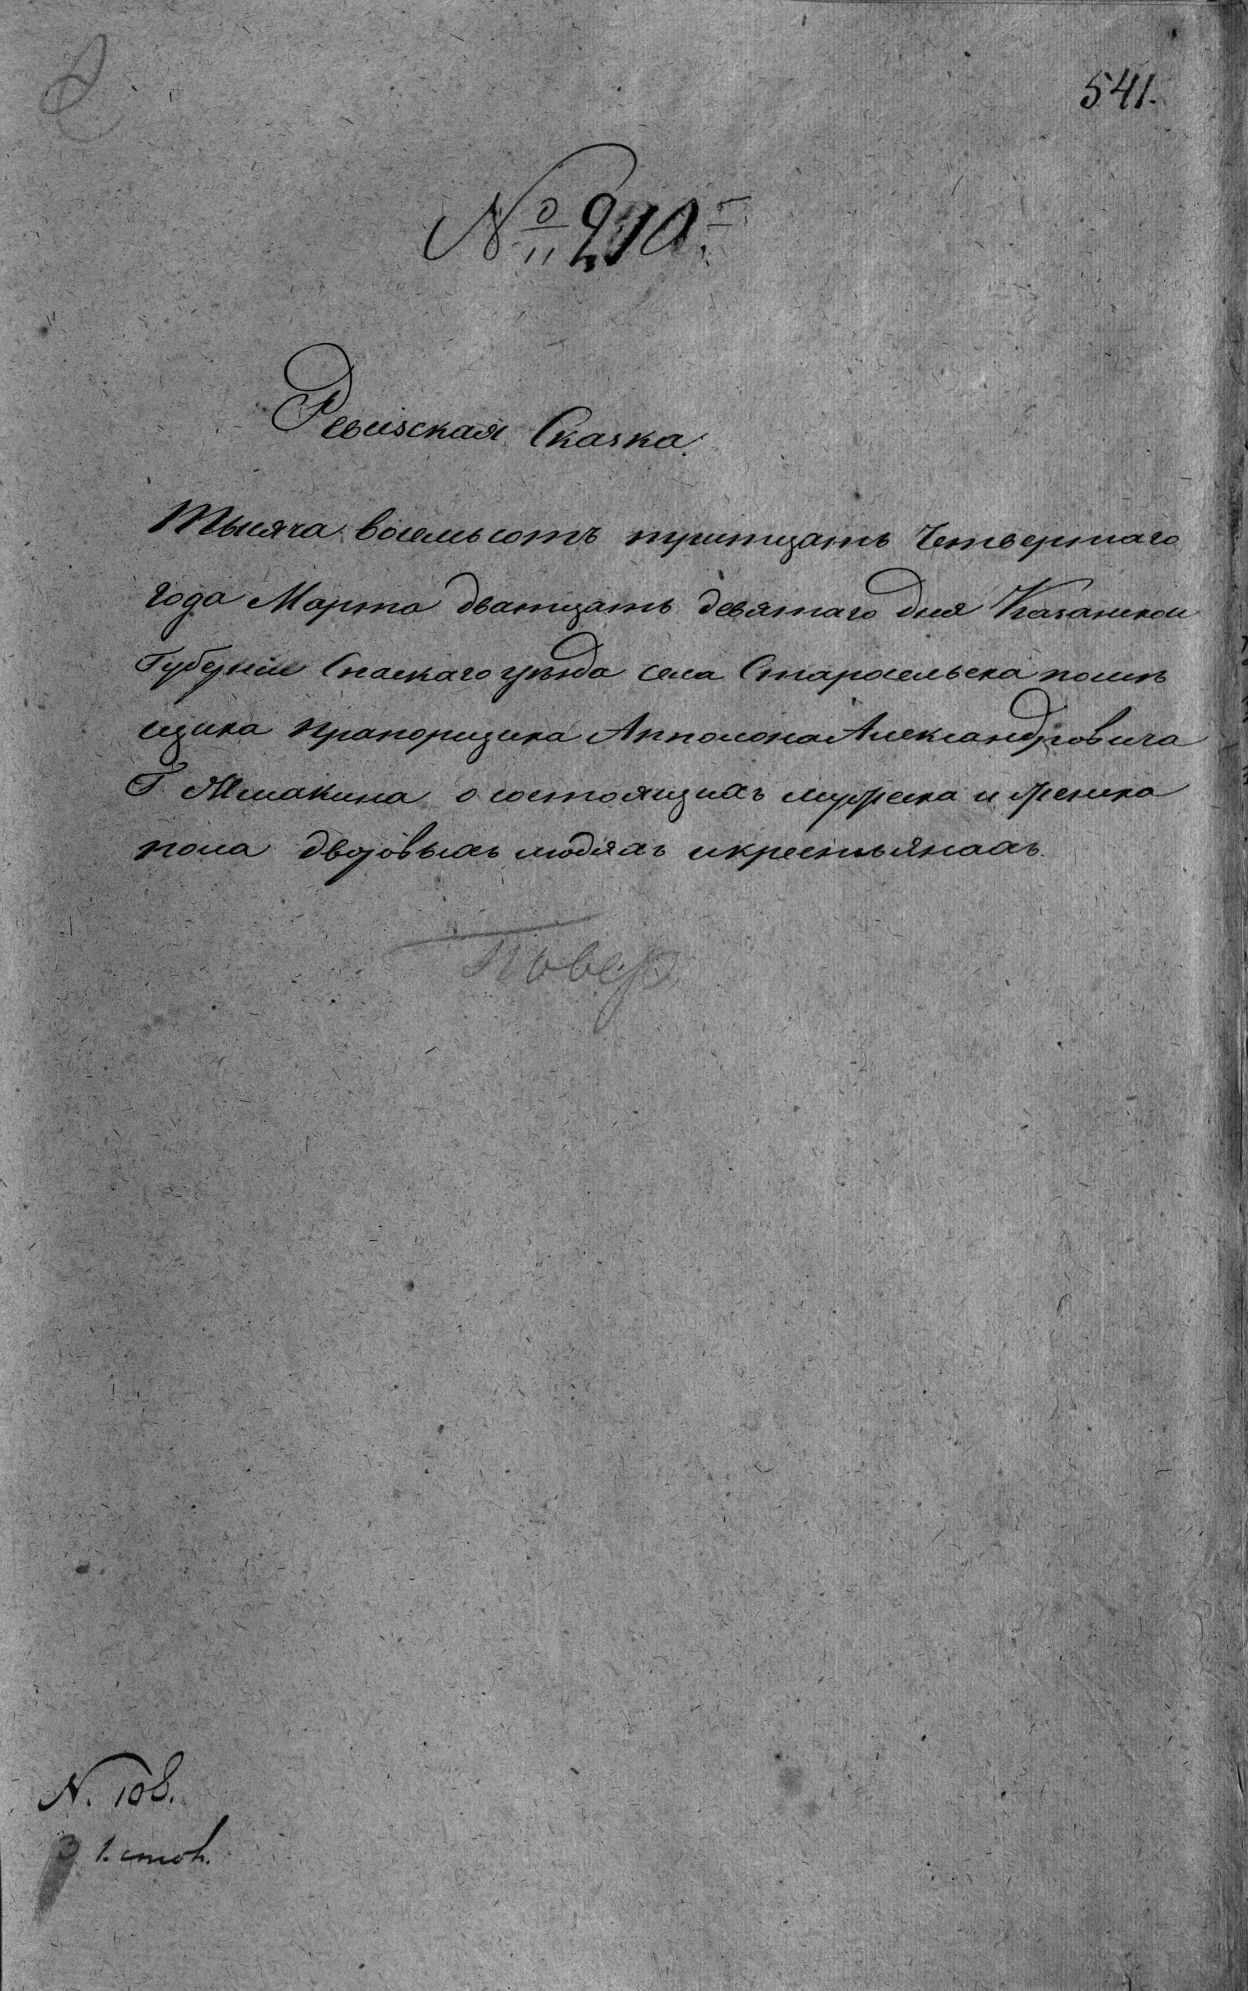 541.
№ 210.
Ревизская Сказка.
Тысяча восемьсотъ тритцать четвертаго
года Марта дватцать девятаго дня Казанской
Губернии Спаскаго уѣзда села Старосельска помѣ
щика прапорщика Апполона Александровича
Г. Жмакина о состоящихъ мужеска и женска
пола дворовыхъ людяхъ и крестьянахъ.
Повер
N. 108.
3 1. стон.